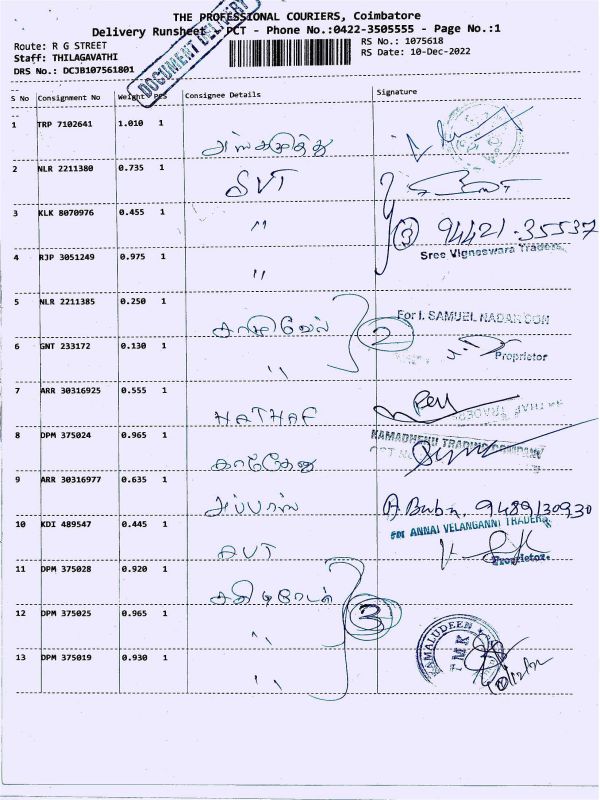 THE PROFESSIONAL COURIERS, Coimbatore
Delivery Runsheet PCT - Phone No.:0422-3505555 - Page No.:1
Route: R G STREET
Staff: THILAGAVATHI
DRS No.: DCJB107561801
RS No.: 1075618
RS Date: 10-Dec-2022
DOCUMENT DELIVERY
S No Consignment No Weight PCS Consignee Details Signature
1 TRP 7102641 1.010 1
2 NLR 2211380 0.735 1 SVT
3 KLK 8070976 0.455 1 "
3 94421-35537
Sree Vigneswara Traders,
4 RJP 3051249 0.975 1 "
5 NLR 2211385 0.250 1
For I. SAMUEL NADAR SON
2
6 GNT 233172 0.130 1 "
Proprietor
7 ARR 30316925 0.555 1 HATHAF
8 DPM 375024 0.965 1 காமதேனு
KAMADHENU TRADING COMPANY
9 ARR 30316977 0.635 1 அப்பாஸ்
A. Babu, 9489130930
10 KDI 489547 0.445 1 AVT
For ANNAI VELANGANNI TRADERS
Proprietor
11 DPM 375028 0.920 1
12 DPM 375025 0.965 1 "
3
13 DPM 375019 0.930 1 "
KAMALUDEEN
TMK
10/12/22